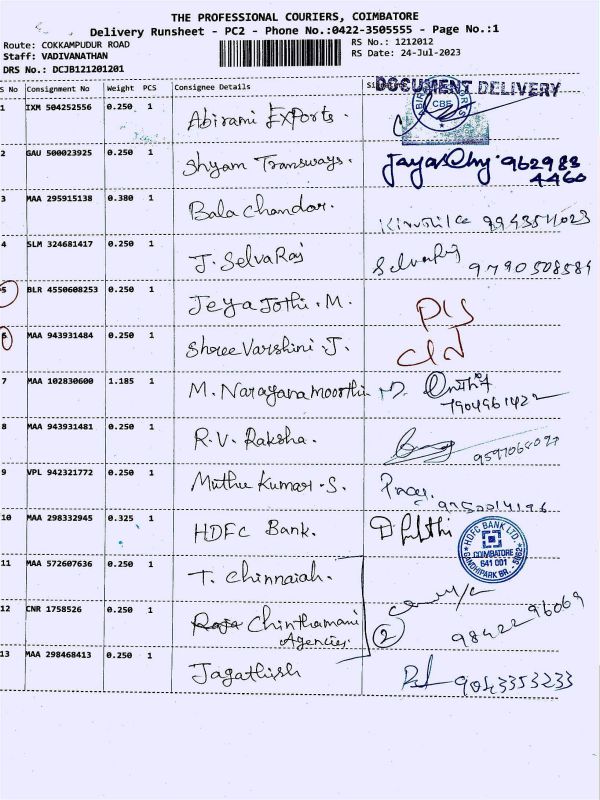 THE PROFESSIONAL COURIERS, COIMBATORE
Delivery Runsheet - PC2 - Phone No.:0422-3505555 - Page No.:1
Route: COKKAMPUDUR ROAD RS No.: 1212012
Staff: VADIVANATHAN RS Date: 24-Jul-2023
DRS No.: DCJB121201201
S No Consignment No Weight PCS Consignee Details
DOCUMENT DELIVERY
1 IXM 504252556 0.250 1 Abirami Exports.
CBE
2 GAU 500023925 0.250 1 Shyam Transways. 962983
4460
3 MAA 295915138 0.380 1 Bala Chandar.
4 SLM 324681417 0.250 1 J. SelvaRaj Selvaraj 9790508584
5 BLR 4550608253 0.250 1 Jeya Jothi. M.
6 MAA 943931484 0.250 1 Shree Varshini. J.
7 MAA 102830600 1.185 1 M. Narayana moorthi
7904961422
8 MAA 943931481 0.250 1 R.V. Raksha.
9 VPL 942321772 0.250 1 Muthu Kumar. S.
10 MAA 298332945 0.325 1 HDFC Bank.
HDFC BANK LTD.
COIMBATORE
641 001
GANDHIPARK BR.
11 MAA 572607636 0.250 1 T. Chinnaiah.
12 CNR 1758526 0.250 1 Raja Chinthamani 2 98422 96069
Agencies.
13 MAA 298468413 0.250 1 Jagathish 9043353233